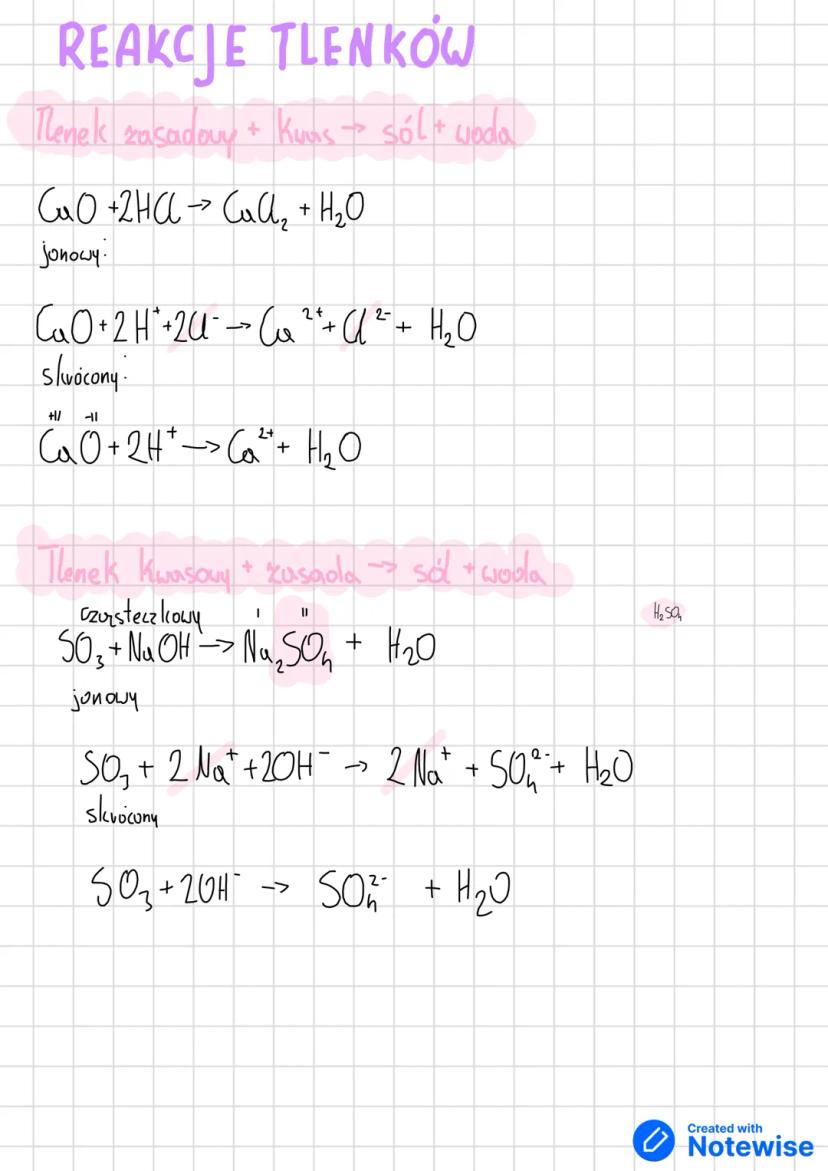 REAKCJE TLENKÓW
Tlenek zasadowy + kwas → sól + woda
CaO + 2HCl → CaCl₂ + H₂O
jonowy:
CaO + 2H⁺ + 2Cl⁻ → Ca²⁺ + Cl²⁻ + H₂O
skrócony:
+II -II
CaO + 2H⁺ → Ca²⁺ + H₂O
Tlenek kwasowy + zasada → sól + woda
cząsteczkowy I II H₂SO₄
SO₃ + NaOH → Na₂SO₄ + H₂O
jonowy
SO₃ + 2Na⁺ + 2OH⁻ → 2Na⁺ + SO₄²⁻ + H₂O
skrócony
SO₃ + 2OH⁻ → SO₄²⁻ + H₂O
Created with
Notewise